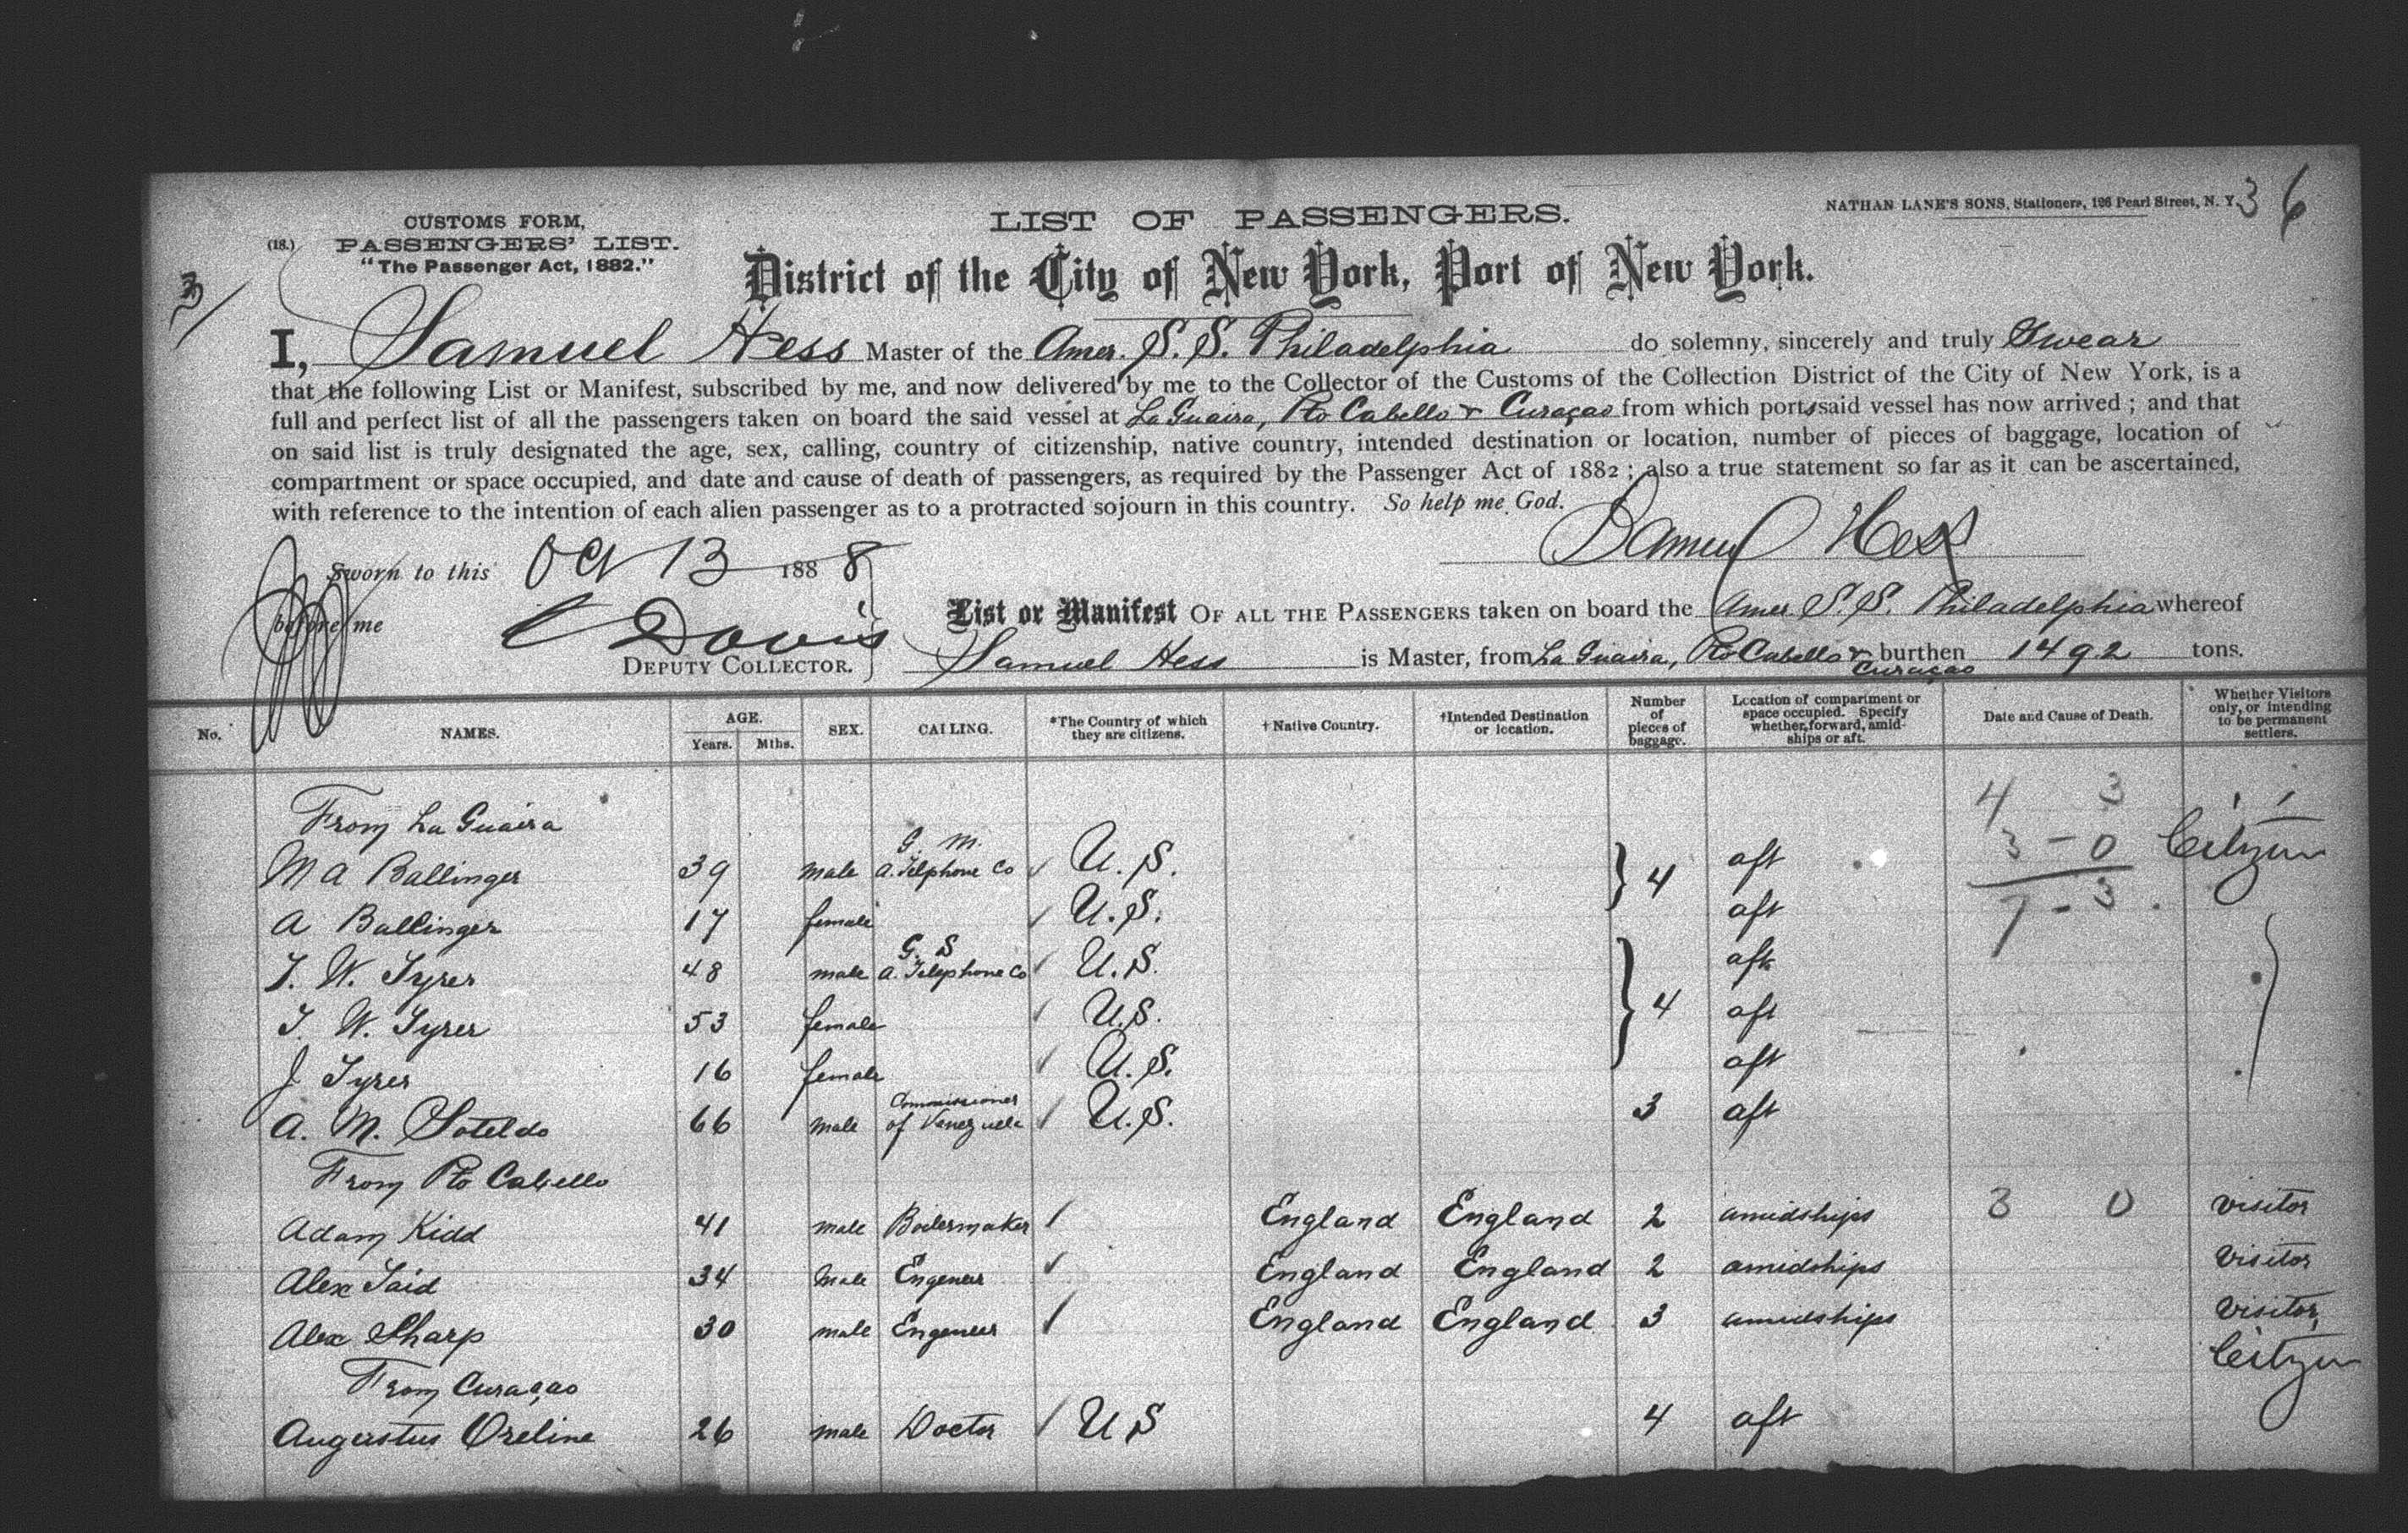 36
NATHAN LANE'S SONS, Stationers, 126 Pearl Street, N. Y.
CUSTOMS FORM,
(18.) PASSENGERS' LIST.
"The Passenger Act, 1882."
LIST OF PASSENGERS.
District of the City of New York, Port of New York.
I, Samuel Hess Master of the Amer. S. S. Philadelphia do solemny, sincerely and truly Swear
that the following List or Manifest, subscribed by me, and now delivered by me to the Collector of the Customs of the Collection District of the City of New York, is a
full and perfect list of all the passengers taken on board the said vessel at La Guaira, Pto Cabello & Curaçao from which ports said vessel has now arrived; and that
on said list is truly designated the age, sex, calling, country of citizenship, native country, intended destination or location, number of pieces of baggage, location of
compartment or space occupied, and date and cause of death of passengers, as required by the Passenger Act of 1882; also a true statement so far as it can be ascertained,
with reference to the intention of each alien passenger as to a protracted sojourn in this country. So help me God.
Samuel Hess
Sworn to this Oct 13 1888
before me
C Davis
DEPUTY COLLECTOR.
List or Manifest OF ALL THE PASSENGERS taken on board the Amer S. S. Philadelphia whereof
Samuel Hess is Master, from La Guaira, Pto Cabello & Curaçao burthen 1492 tons.
No. NAMES. AGE. Years. Mths. SEX. CALLING. *The Country of which they are citizens. †Native Country. †Intended Destination or location. Number of pieces of baggage. Location of compartment or space occupied. Specify whether, forward, amidships or aft. Date and Cause of Death. Whether Visitors only, or intending to be permanent settlers.
4 3
3 - 0
7 - 3
From La Guaira
M A Ballinger 39 male G. M. A. Telphone Co U. S. 4 aft Citizen
A Ballinger 17 female U. S. aft
T. W. Tyrer 48 male G. S A. Telephone Co U. S. 4 aft
T. W. Tyrer 53 female U. S. aft
J Tyrer 16 female U. S. aft
A. M. Soteldo 66 male Commissioner of Venezuela U. S. 3 aft
From Pto Cabello
Adam Kidd 41 male Boilermaker England England 2 amidships 3 0 visitor
Alex Said 34 Male Engeneer England England 2 amidships visitor
Alex Sharp 30 male Engeneer England England 3 amidships visitor
From Curaçao
Augustus Oreline 26 male Doctor U S 4 aft Citizen